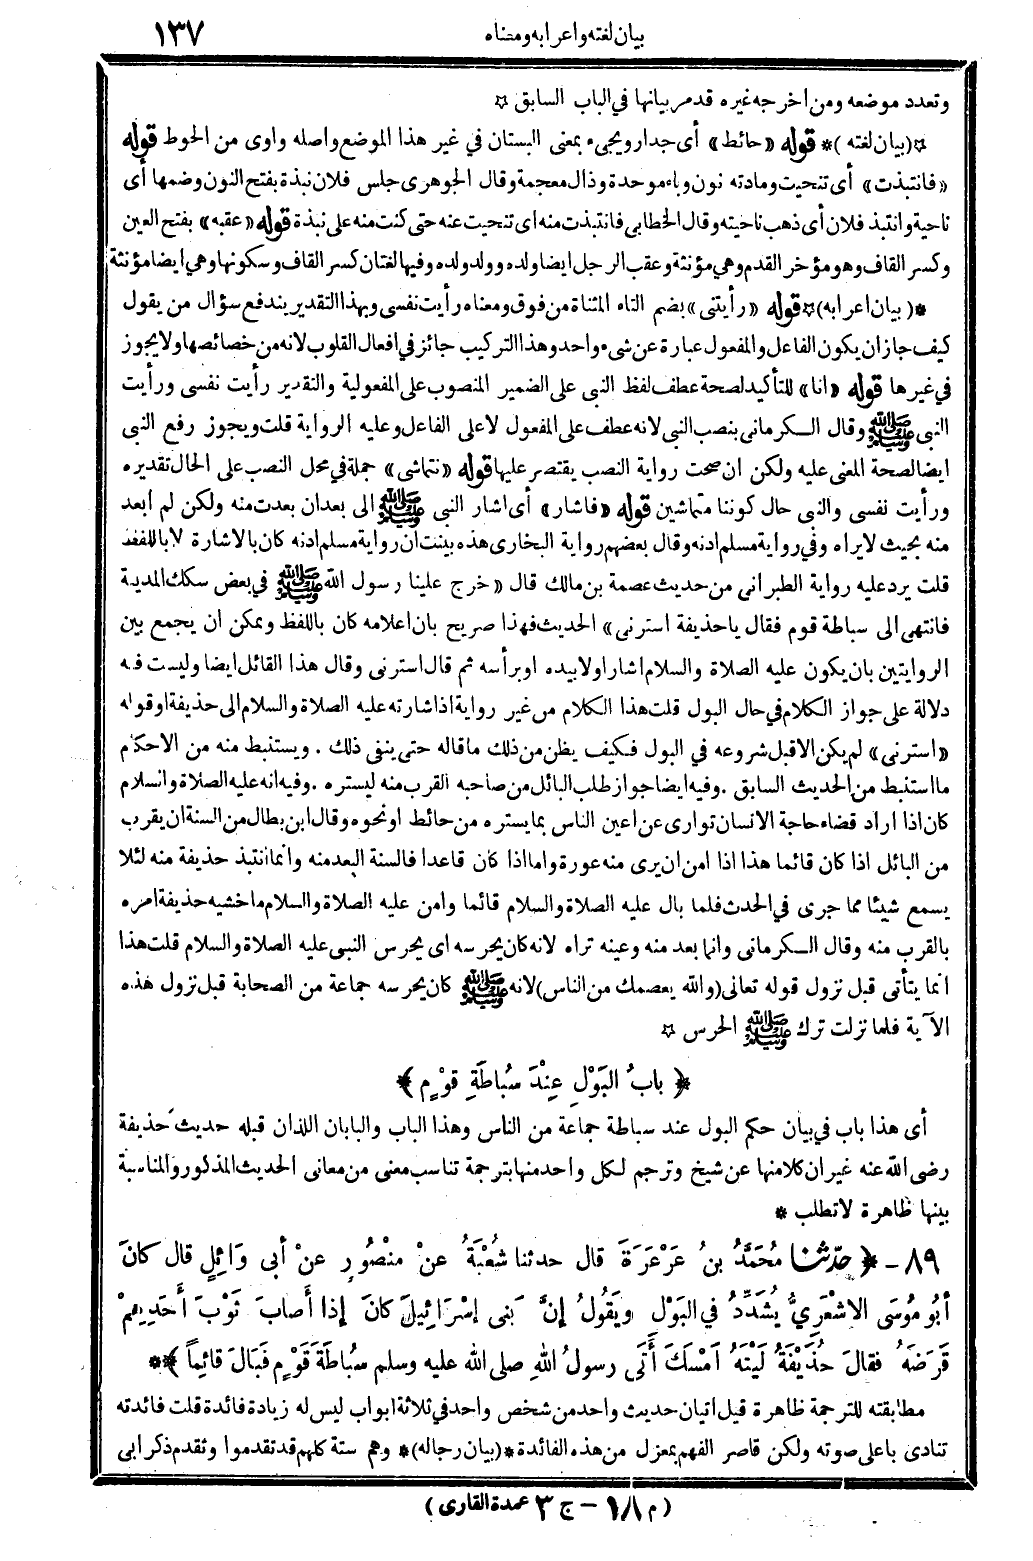 بيان لغته واعرابه ومعناه ١٣٧
وتعدد موضعه ومن اخرجه غيره قد مر بيانها في الباب السابق ☆
☆(بيان لغته)* قوله «حائط» أى جدار ويجىء بمعنى البستان في غير هذا الموضع واصله واوى من الحوط قوله
«فانتبذت» أى تنحيت ومادته نون وباء موحدة وذال معجمة وقال الجوهرى جلس فلان نبذة بفتح النون وضمها أى
ناحية وانتبذ فلان أى ذهب ناحيته وقال الخطابى فانتبذت منه اى تنحيت عنه حتى كنت منه على نبذة قوله «عقبه» بفتح العين
وكسر القاف وهو مؤخر القدم وهي مؤنثة وعقب الرجل ايضا ولده وولد ولده وفيها لغتان كسر القاف وسكونها وهي ايضا مؤنثة
*(بيان اعرابه)☆ قوله «رأيتنى» بضم التاء المثناة من فوق ومعناه رأيت نفسى وبهذا التقدير يندفع سؤال من يقول
كيف جاز ان يكون الفاعل والمفعول عبارة عن شىء واحد وهذا التركيب جائز في افعال القلوب لانه من خصائصها ولا يجوز
في غيرها قوله «انا» للتأكيد لصحة عطف لفظ النبى على الضمير المنصوب على المفعولية والتقدير رأيت نفسى ورأيت
النبى ﷺ وقال الكرمانى بنصب النبى لانه عطف على المفعول لا على الفاعل وعليه الرواية قلت ويجوز رفع النبى
ايضا لصحة المعنى عليه ولكن ان صحت رواية النصب يقتصر عليها قوله «نتماشى» جملة في محل النصب على الحال تقديره
ورأيت نفسى والنبى حال كوننا متماشين قوله «فاشار» أى اشار النبى ﷺ الى بعد ان بعدت منه ولكن لم أبعد
منه بحيث لا يراه وفي رواية مسلم ادنه وقال بعضهم رواية البخارى هذه بينت ان رواية مسلم ادنه كان بالاشارة لا باللفظ
قلت يرد عليه رواية الطبرانى من حديث عصمة بن مالك قال «خرج علينا رسول الله ﷺ في بعض سكك المدينة
فانتهى الى سباطة قوم فقال ياحذيفة استرنى» الحديث فهذا صريح بان اعلامه كان باللفظ ويمكن ان يجمع بين
الروايتين بان يكون عليه الصلاة والسلام اشار اولا بيده او برأسه ثم قال استرنى وقال هذا القائل ايضا وليست فيه
دلالة على جواز الكلام في حال البول قلت هذا الكلام من غير رواية اذ اشارته عليه الصلاة والسلام الى حذيفة او قوله
«استرنى» لم يكن الا قبل شروعه في البول فكيف يظن من ذلك ما قاله حتى ينفى ذلك . ويستنبط منه من الاحكام
ما استنبط من الحديث السابق . وفيه ايضا جواز طلب البائل من صاحبه القرب منه ليستره . وفيه انه عليه الصلاة والسلام
كان اذا اراد قضاء حاجة الانسان توارى عن اعين الناس بما يستره من حائط او نحوه وقال ابن بطال من السنة ان يقرب
من البائل اذا كان قائما هذا اذا امن ان يرى منه عورة واما اذا كان قاعدا فالسنة البعد منه وانما انتبذ حذيفة منه لئلا
يسمع شيئا مما جرى في الحدث فلما بال عليه الصلاة والسلام قائما وامن عليه الصلاة والسلام ما خشيه حذيفة امره
بالقرب منه وقال الكرمانى وانما بعد منه وعينه تراه لانه كان يحرسه اى يحرس النبى عليه الصلاة والسلام قلت هذا
انما يتأتى قبل نزول قوله تعالى (والله يعصمك من الناس) لانه ﷺ كان يحرسه جماعة من الصحابة قبل نزول هذه
الآية فلما نزلت ترك ﷺ الحرس ☆
*﴿ باب البَوْلِ عِنْدَ سُباطَةِ قوْمٍ ﴾*
أى هذا باب في بيان حكم البول عند سباطة جماعة من الناس وهذا الباب والبابان اللذان قبله حديث حذيفة
رضى الله عنه غير ان كلا منها عن شيخ وترجم لكل واحد منها بترجمة تناسب معنى من معانى الحديث المذكور والمناسبة
بينها ظاهرة لا تطلب *
٨٩ - ﴿ حدّثنا مُحَمَّدُ بنُ عَرْعَرَةَ قال حدثنا شُعْبَةُ عنْ منْصُورٍ عنْ أبى وَائِلٍ قال كانَ
أبُو مُوسَى الاشْعَرِيُّ يُشَدِّدُ في البَوْلِ ويَقُولُ إنَّ بَنى إسْرَائِيلَ كانَ إذا أصابَ ثَوْبَ أحَدِهِمْ
قَرَضَهُ فقالَ حُذَيْفَةُ لَيْتَهُ أمْسَكَ أتَى رسولُ اللهِ صلى الله عليه وسلم سُباطَةَ قَوْمٍ فَبَالَ قائِماً ﴾**
مطابقته للترجمة ظاهرة قيل اتيان حديث واحد من شخص واحد في ثلاثة ابواب ليس له زيادة فائدة قلت فائدته
تنادى باعلى صوته ولكن قاصر الفهم بمعزل من هذه الفائدة *(بيان رجاله)* وهم ستة كلهم قد تقدموا وتقدم ذكر ابى
(م ١٨ - ج ٣ عمدة القارى)